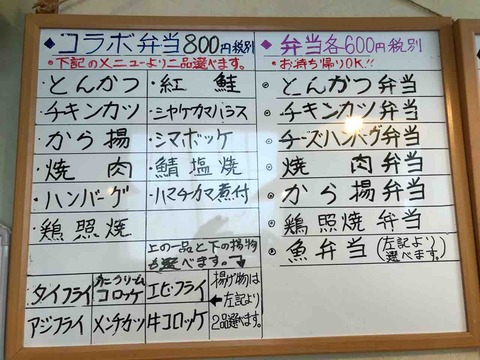 ◆コラボ弁当800円税別
●下記のメニューより二品選べます。
・とんかつ
・紅鮭
・チキンカツ
・シャケカマハラス
・から揚
・シマホッケ
・焼肉
・鯖塩焼
・ハンバーグ
・ハマチカマ煮付
・鶏照焼
上の一品と下の揚物
も選べます。
タイフライ
カニクリーム
コロッケ
エビフライ
アジフライ
メンチカツ
牛コロッケ
揚げ物は
←左記より
2品選べます。
◆弁当各600円税別
●お持ち帰りOK!!
とんかつ弁当
チキンカツ弁当
チーズハンバーグ弁当
焼肉弁当
から揚弁当
鶏照焼弁当
魚弁当(左記より
選べます。)